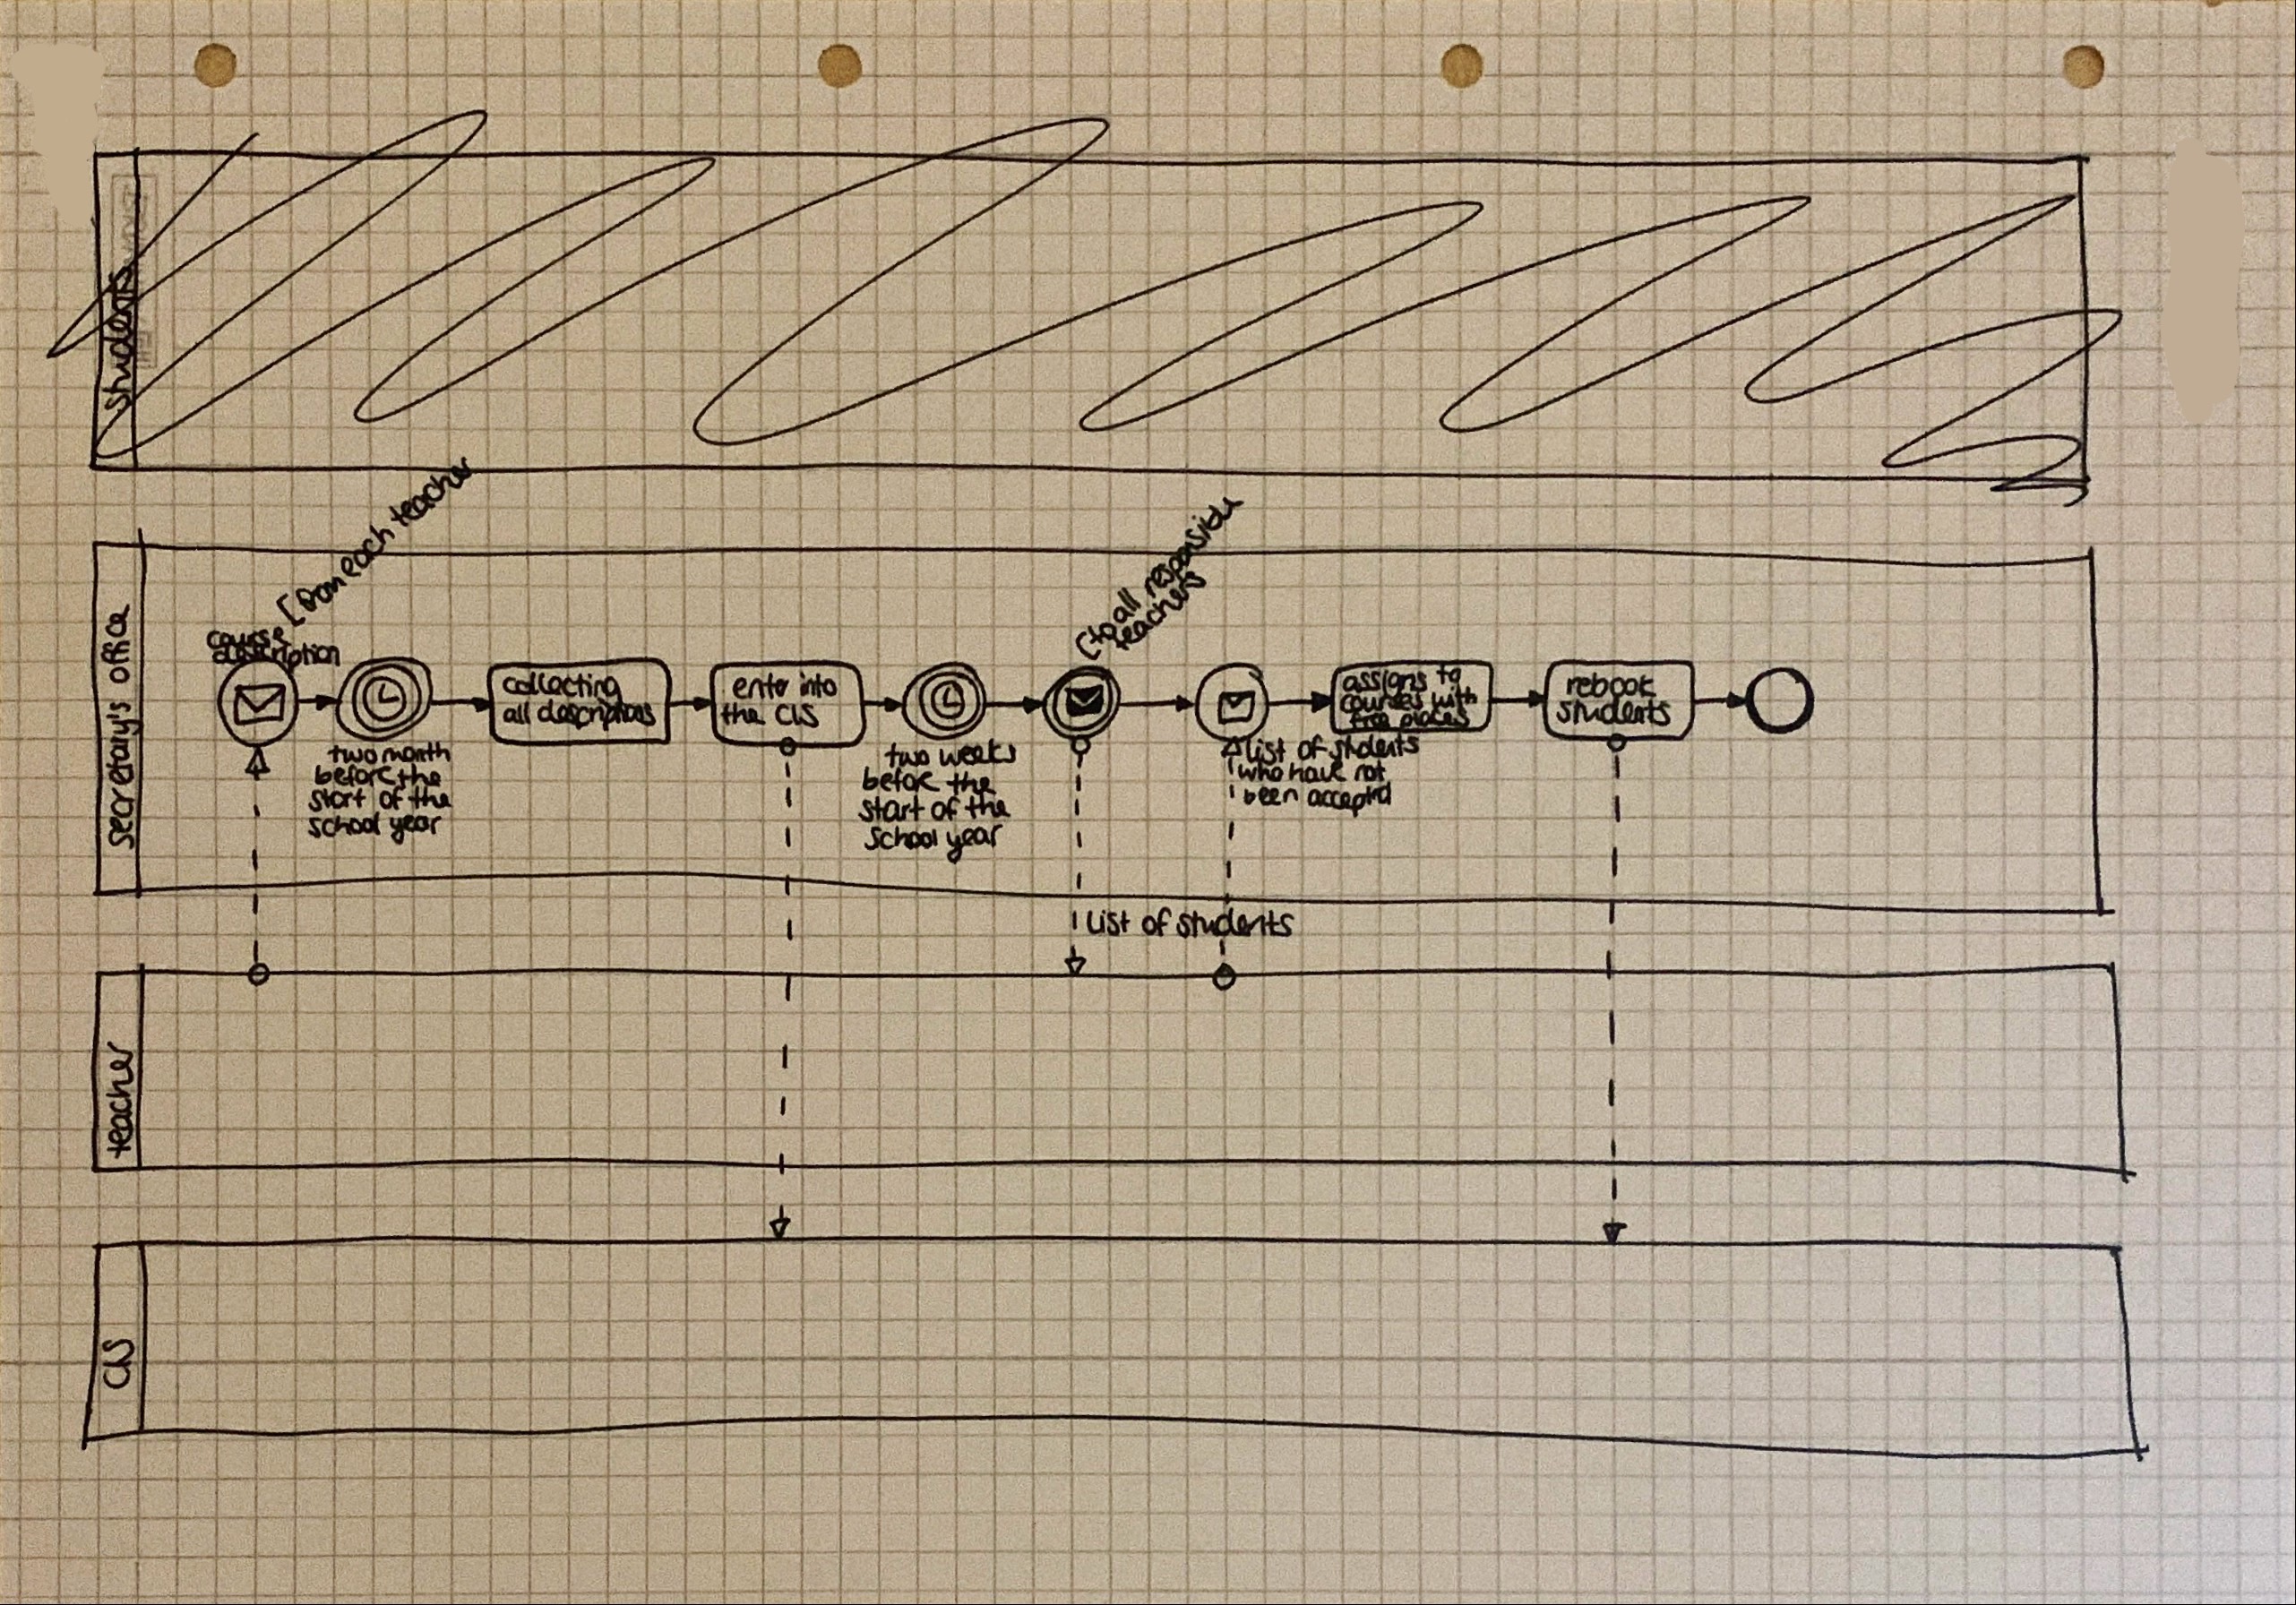 students
secretary's office
[from each teacher
course
description
two month
before the
start of the
school year
collecting
all descriptions
enter into
the CIS
two weeks
before the
start of the
school year
[to all responsible
teachers
list of students
who have not
been accepted
assigns to
courses with
free places
rebook
students
list of students
teacher
CIS